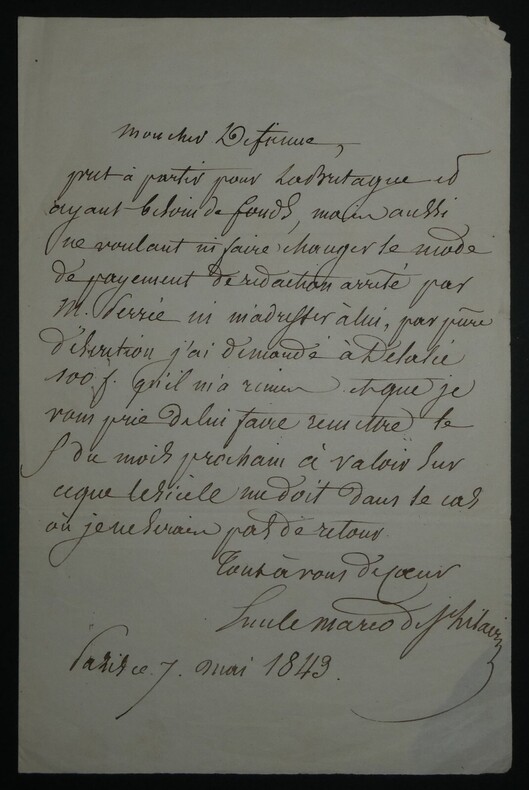 mon cher Defienne,
prêt à partir pour La Bretagne et
ayant besoin de fonds, mais aussi
ne voulant ni faire changer le mode
de payement de rédaction arrêté par
M. Perrée ni m'adresser à lui, par pure
discrétion j'ai demandé à
100 f. qu'il m'a remis et que je
vous prie de lui faire remettre le
5 du mois prochain à valoir sur
ce que le siècle me doit dans le cas
où je ne serais pas de retour.
Tout à vous de Coeur
Emile marco de St hilaire
Paris ce 7. mai 1843.